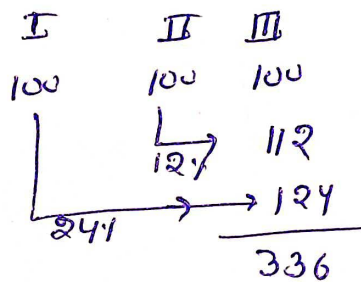 I II III
100 100 100
12% 112
24% 124
336